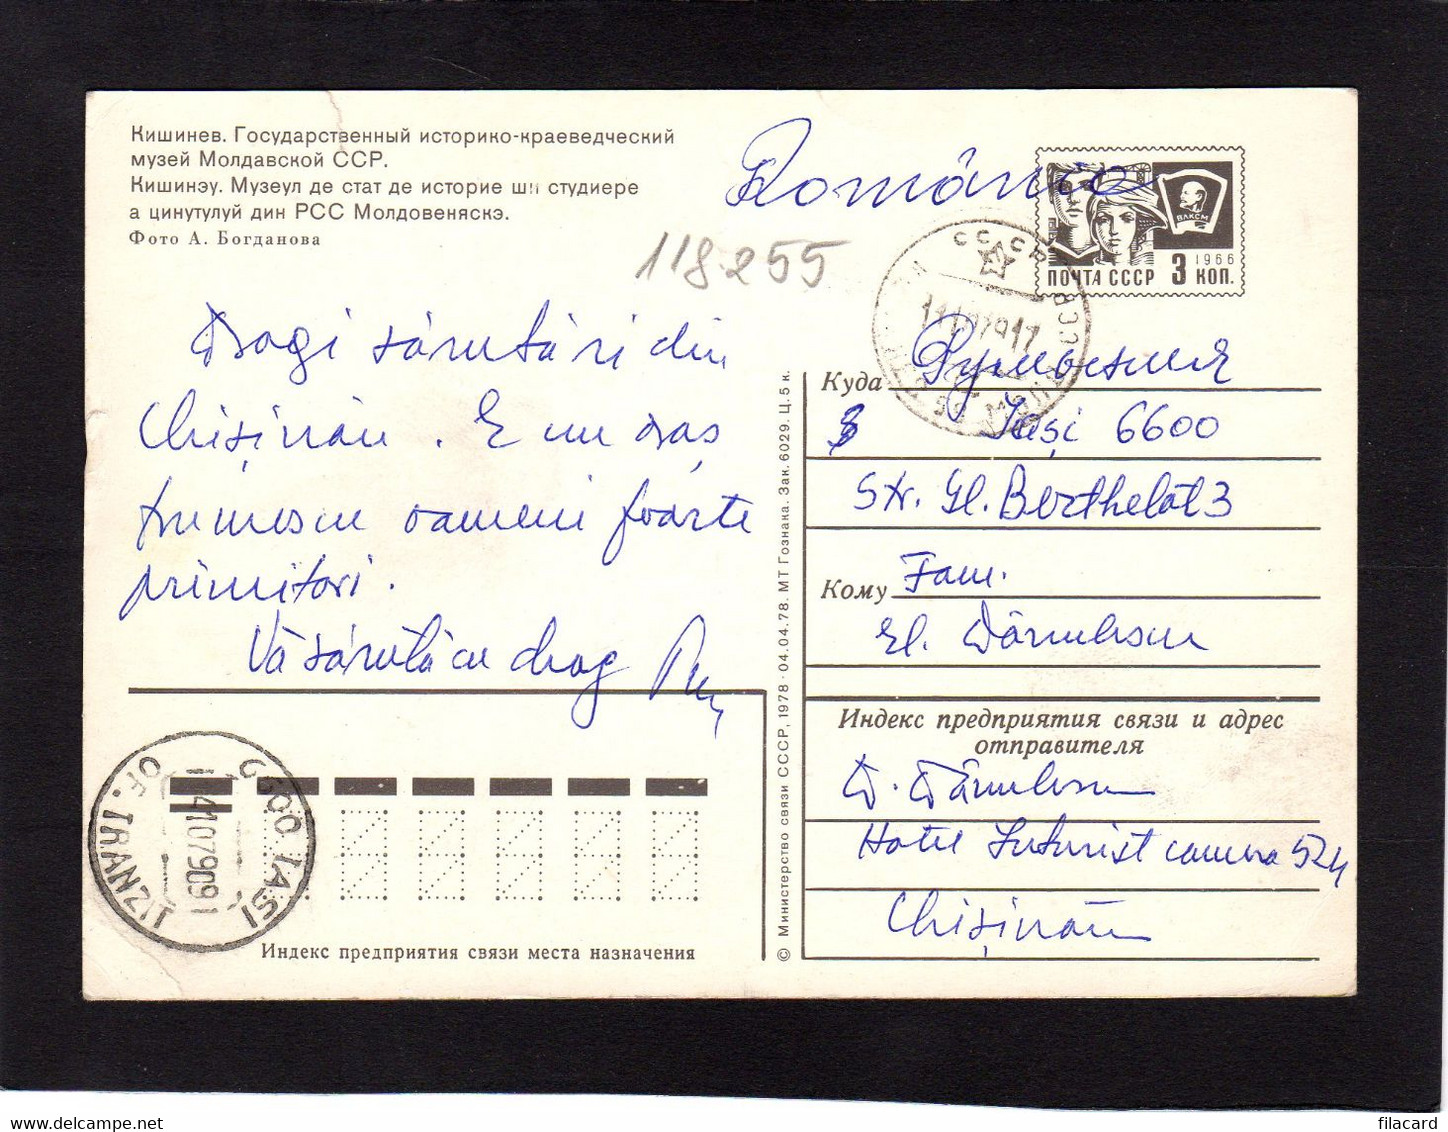 Кишинев. Государственный историко-краеведческий
музей Молдавской ССР.
Кишинэу. Музеул де стат де историе ши студиере
а цинутулуй дин РСС Молдовеняскэ.
Фото А. Богданова
România
118255
ВЛКСМ
1966
ПОЧТА СССР 3 КОП.
СССР
Dragi sărutări din
Chișinău. E un oraș
frumos cu oameni foarte
primitori.
Vă sărută cu drag
Куда Румыния
Iași 6600
Str. Gl. Berthelot 3
Кому Fam.
Gl. Dănulescu
Индекс предприятия связи и адрес
отправителя
D. Dănulescu
Hotel Inturist camera 524
Chișinău
6600 IASI
OF. TRANZIT
Индекс предприятия связи места назначения
© Министерство связи СССР, 1978 · 04.04.78. МТ Гознака. Зак. 6029. Ц. 5 к.
filacard